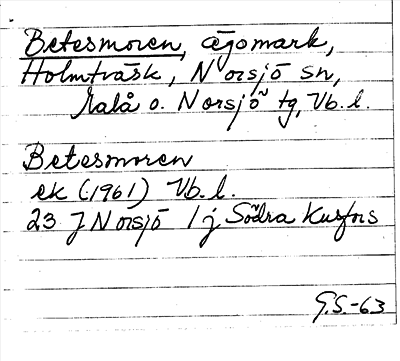 Betesmoren, ägomark,
Holmträsk, Norsjö sn,
Malå o. Norsjö tg, Vb. l.
Betesmoren
ek (1961) Vb. l.
23 J Norsjö 1 j Södra Kusfors
G.S.-63